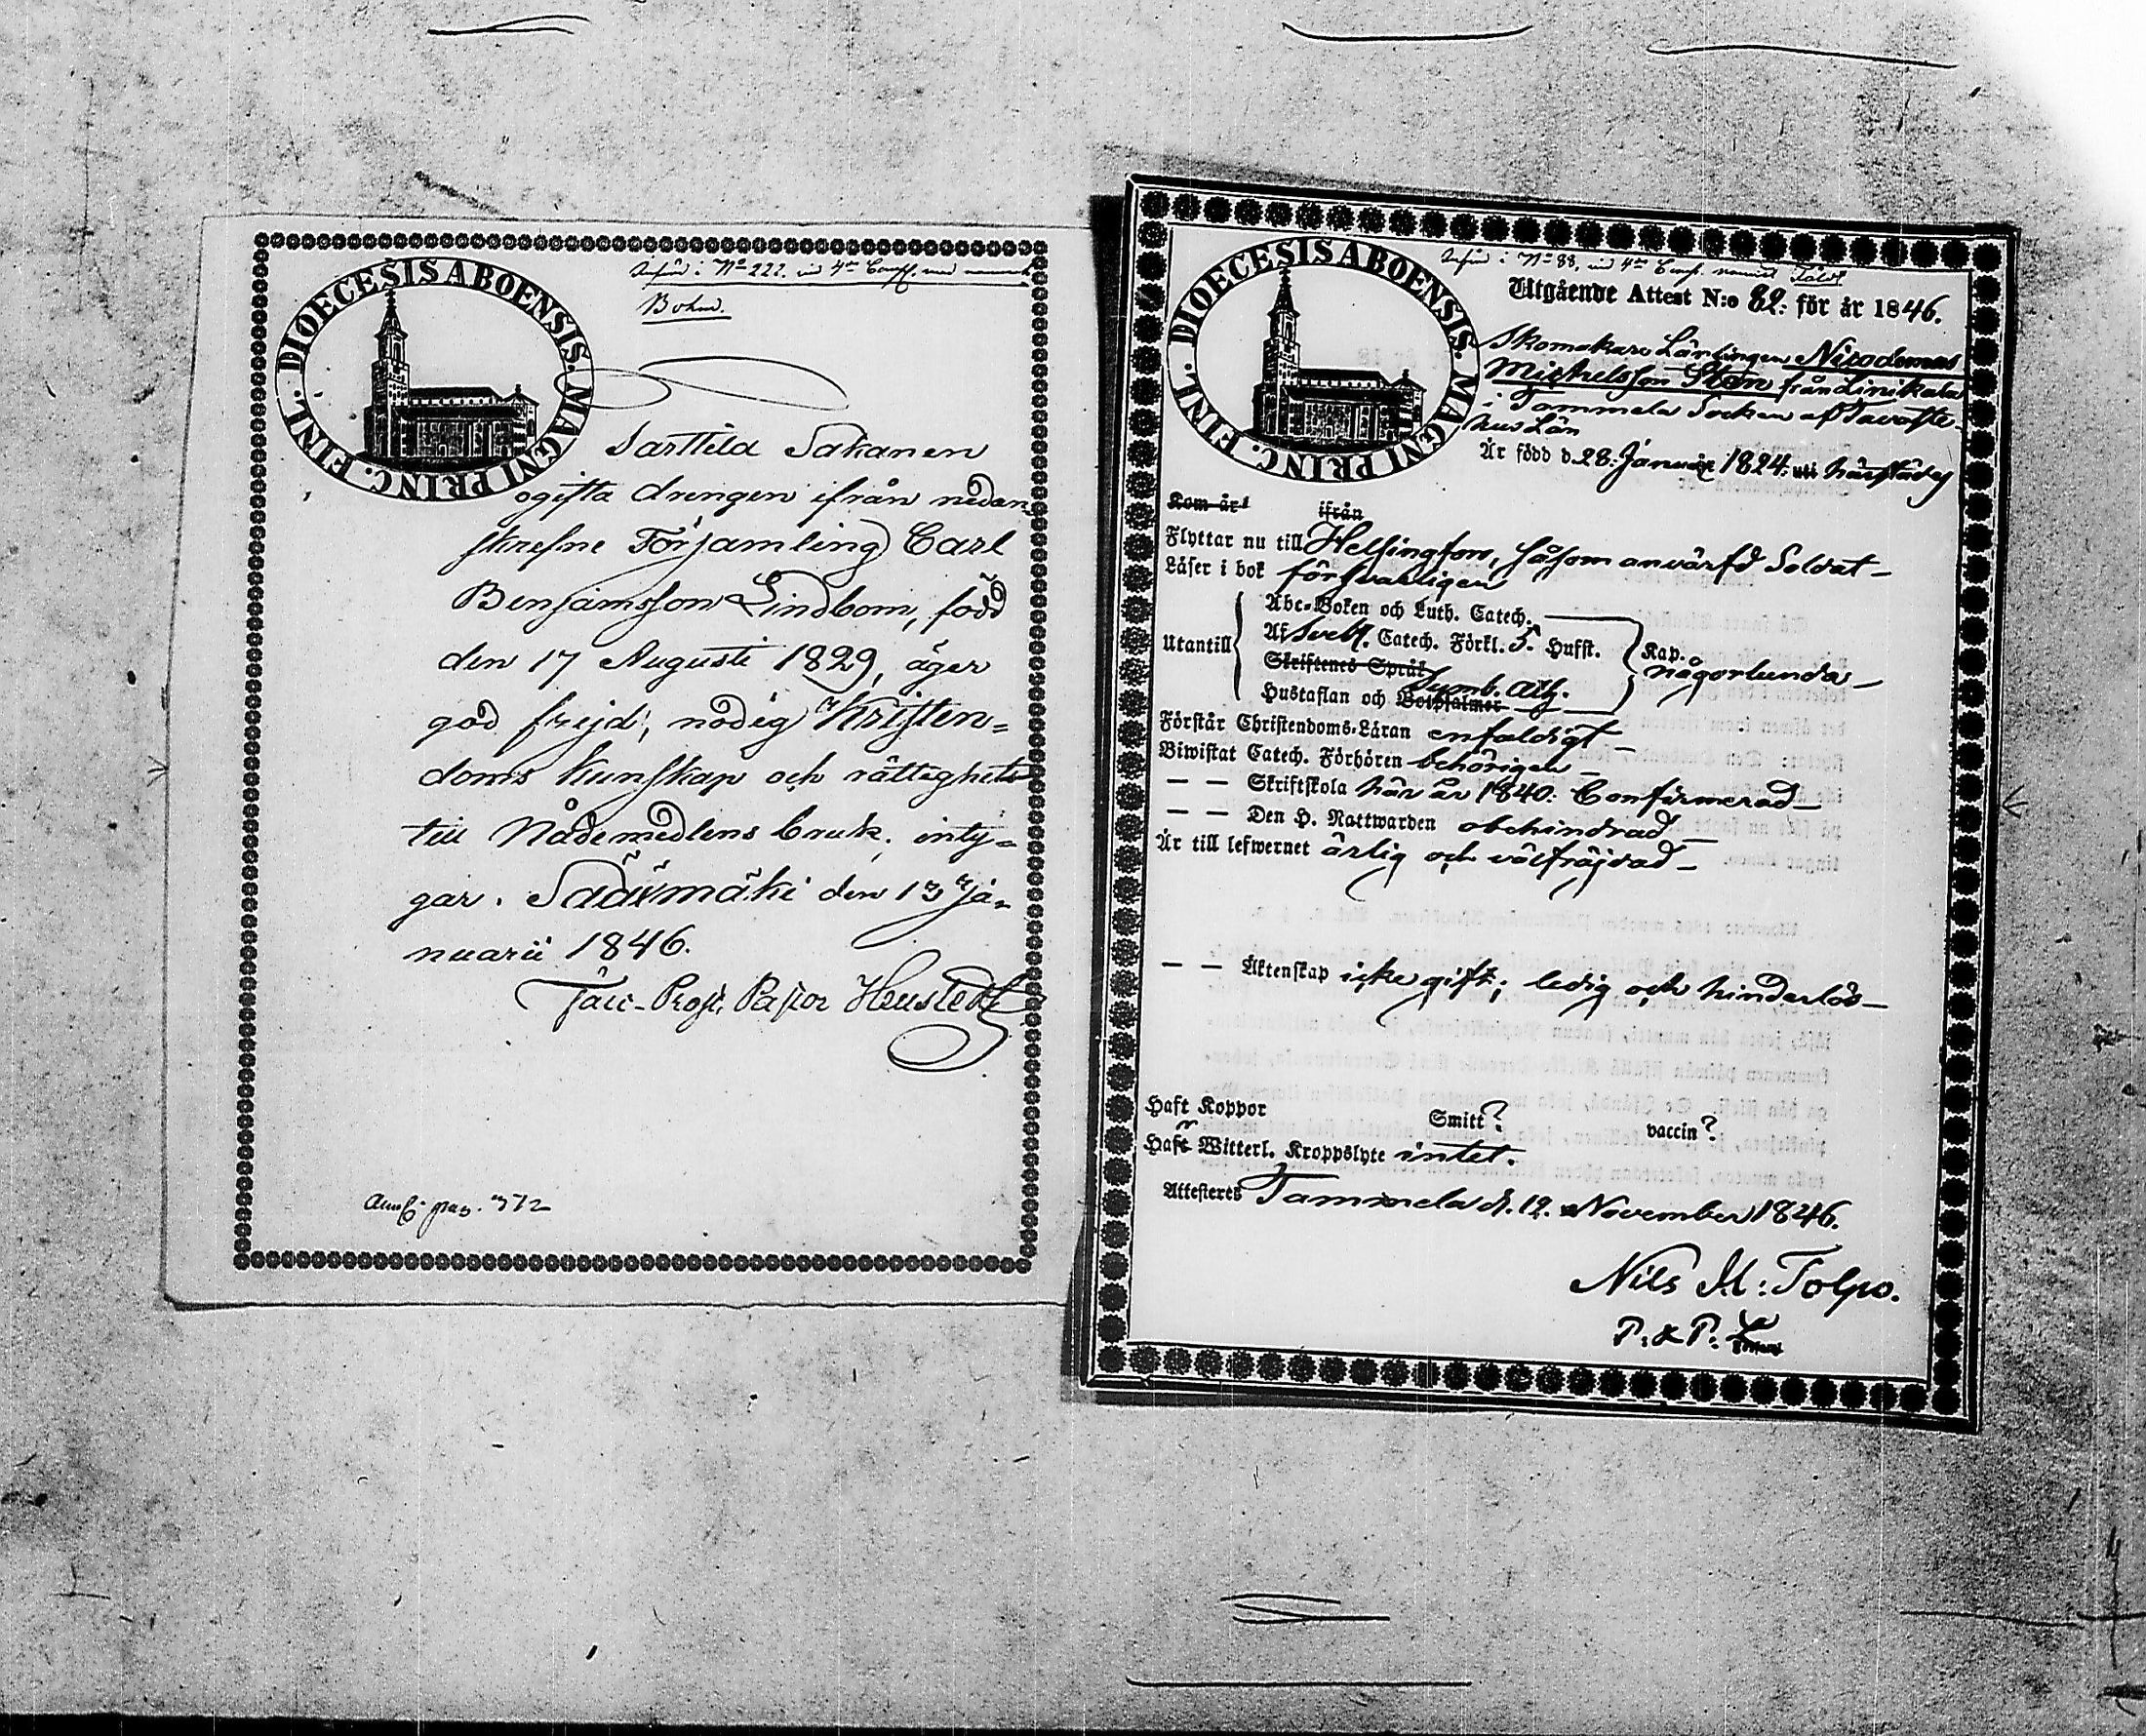 DIOECESIS ABOENSIS. MAGNI PRINC. FINL.
N:o 222. vid 4:de
Bohm.
Sakanen
ogifta drengen ifrån nedan-
skrefne Församling Carl
Benjamsson Lindbom, född
den 17 Augusti 1829, äger
god frejd, nödig Kristen-
doms kunskap och rättighet
till Nådemedlens bruk, inty-
gar. Sääxmäki den 13 Ja-
nuarii 1846.
Pastor
pag. 372
DIOECESIS ABOENSIS. MAGNI PRINC. FINL.
N:o 88, vid 4:de
Utgående Attest N:o 82: för år 1846.
Skomakare Lärlingen Nicodemus
Michelsson Sten från Linikala
i Tammela Socken af Tavaste-
hus Län
Är född d. 28: Januar 1824: uti härstädes
Kom år ifrån
Flyttar nu till Helsingfors, såsom anvärfd Soldat -
Läser i bok försvarligen
Utantill
Abc-Boken och Luth. Catech.
Af Sveb. Catech. Förkl. 5. Hufst.
Kap.
någorlunda -
Skriftenes Språk
Symb. Ath.
Hustaflan och Botpsalmer
Förstår Christendoms-Läran enfaldigt -
Biwistat Catech. Förhören behörigen -
— — Skriftskola här år 1840: Confirmerad -
— — Den H. Nattwarden obehindrad -
Är till lefwernet ärlig och välfräjdad -
— — Äktenskap icke gift; ledig och hinderlös -
Haft Koppor Smitt? vaccin?
Haft Witterl. Kroppslyte intet.
Attesteres Tammela d. 12. November 1846.
Nils M: Tolpo.
P. & P.